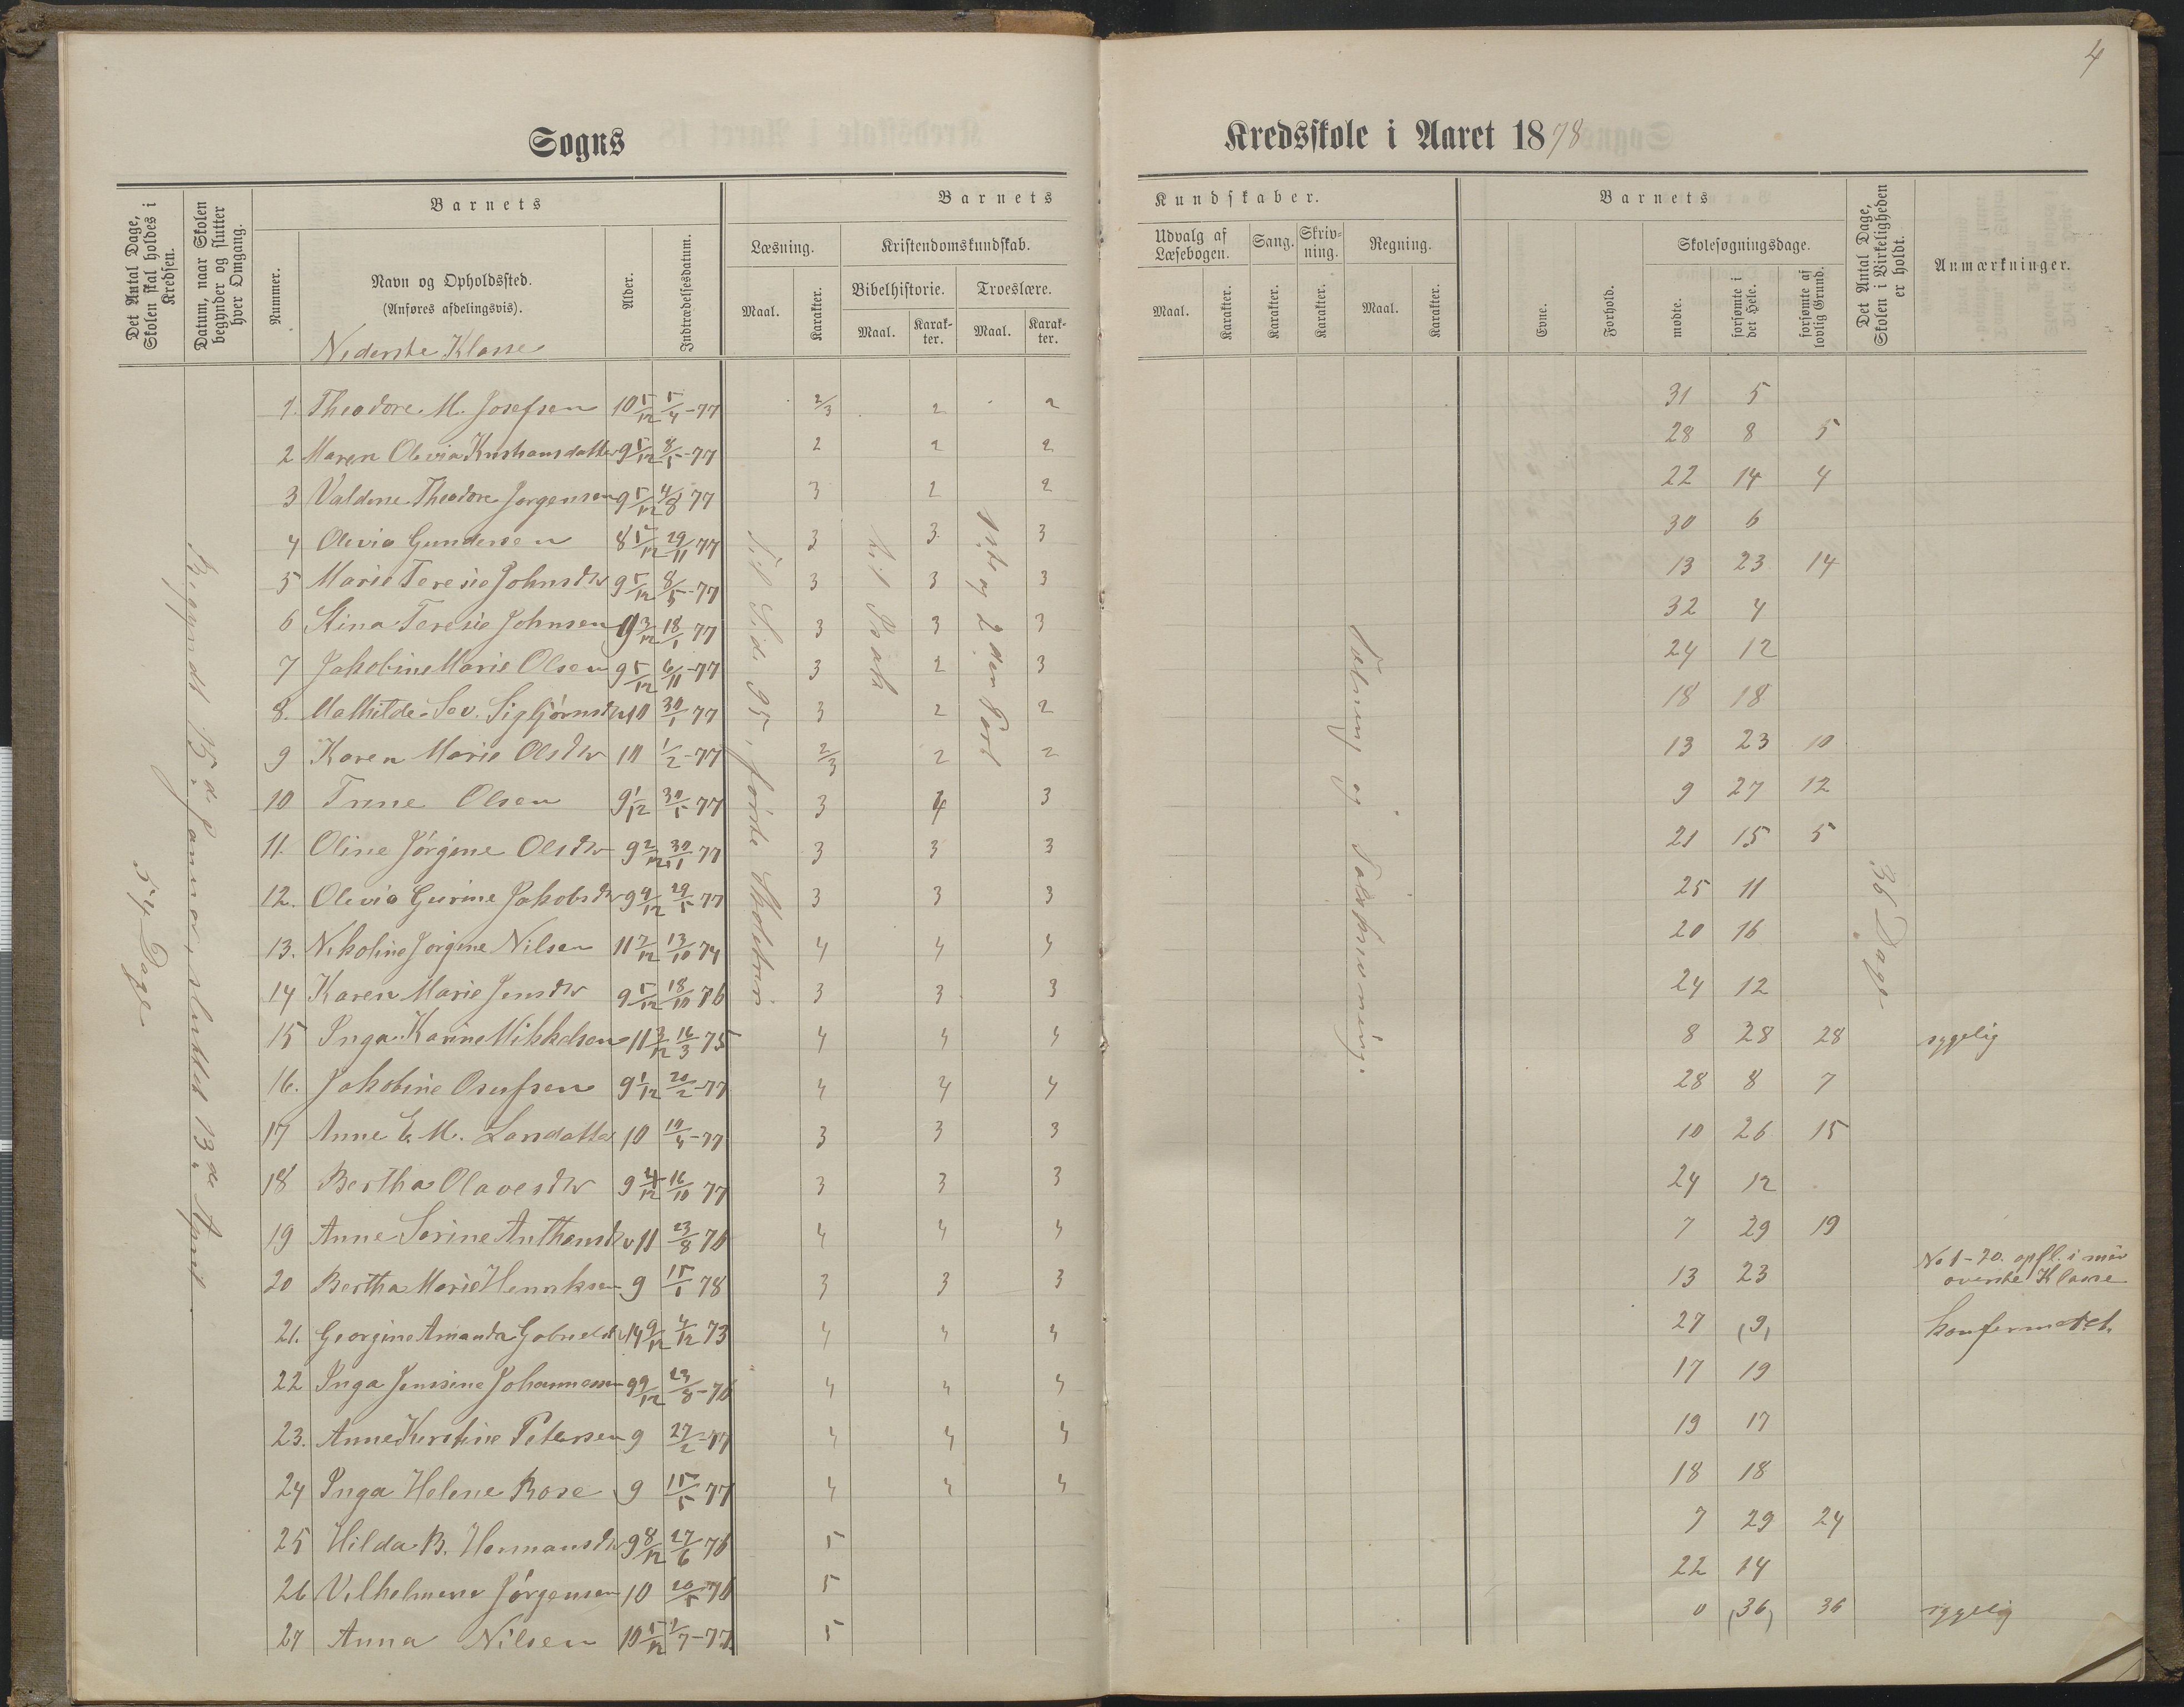 4
Sogns
Kredsskole i Aaret 1878
Det Antal Dage, Skolen skal holdes i Kredsen.
Datum, naar Skolen begynder og slutter hver Omgang.
Barnets
Nummer.
Navn og Opholdssted.
(Anføres afdelingsvis).
Nederste Klasse
Alder.
Indtrædelsesdatum.
Barnets
Læsning.
Maal.
Karakter.
Kristendomskundskab.
Bibelhistorie.
Maal.
Karakter.
Troeslære.
Maal.
Karakter.
Kundskaber.
Udvalg af Læsebogen.
Maal.
Karakter.
Sang.
Karakter.
Skrivning.
Karakter.
Regning.
Maal.
Karakter.
Barnets
Evne.
Forhold.
Skolesøgningsdage.
mødte.
forsømte i det Hele.
forsømte af lovlig Grund.
Det Antal Dage, Skolen i Virkeligheden er holdt.
Anmærkninger.
54 Dage
Begyndt 15d. Januar, sluttet 13de April
Til Side 95, første Skoletrin
til Isak
1ste og 2den Part
Tælning og Talskrivning.
36 Dage
1. Theodore M. Josefsen 10 5/12 5/4-77 2/3 2 2 31 5
2 Maren Olevia Kristiansdatter 9 5/12 8/5-77 2 2 2 28 8 5
3 Valdine Theodore Jørgensen 9 5/12 4/8 77 3 2 2 22 14 4
4 Olevia Gundersen 8 5/12 29/11 77 3 3 3 30 6
5 Marie Teresie Johnsdtr 9 5/12 8/5-77 3 3 3 13 23 14
6 Stina Teresie Johnsen 9 3/12 18/1 77 3 3 3 32 4
7 Jakobine Marie Olsen 9 5/12 6/11-77 3 2 3 24 12
8. Mathilde Sev. Sigbjørnsdtr 10 30/1 77 3 2 2 18 18
9 Karen Marie Olsdtr 10 1/2-77 2/3 2 2 13 23 10
10 Trine Olsen 9 1/12 30/5 77 3 4 3 9 27 12
11. Oline Jørgine Olsdtr 9 2/12 30/1 77 3 3 3 21 15 5
12. Olevia Gurine Jakobsdtr 9 4/12 29/5 77 3 3 3 25 11
13. Nikoline Jørgine Nilsen 11 7/12 13/10 74 4 4 4 20 16
14 Karen Marie Jensdtr 9 5/12 18/10 76 3 3 3 24 12
15 Inga Karine Mikkelsen 11 3/12 16/3 75 4 4 4 8 28 28 sygelig
16. Jakobine Osufsen 9 1/12 20/2-77 4 4 4 28 8 7
17 Anne E. M. Larsdatter 10 10/4-77 3 3 3 10 26 15
18 Bertha Olavesdtr 9 4/12 16/10 77 3 3 3 24 12
19 Anne Serine Anthonsdtr 11 23/8 76 4 4 4 7 29 19
20 Bertha Marie Henriksen 9 15/1 78 3 3 3 13 23 No 1-20. opfl. i
øverste Klasse
21. Georgine Amanda Gabrielsdtr 14 9/12 4/12 73 4 4 4 27 (9) konfirmeret.
22 Inga Jensine Johannesen 9 9/12 23/8-76 4 4 4 17 19
23. Anne Kirstine Petersen 9 27/2-77 4 4 4 19 17
24 Inga Helene Rose 9 15/5 77 4 4 4 18 18
25 Hilda B. Hermansdtr 9 8/12 27/6 76 5 7 29 24
26 Vilhelmine Jørgensen 10 20/5 76 5 22 14
27 Anna Nilsen 10 5/12 2/7-77 5 0 (36) 36 sygelig